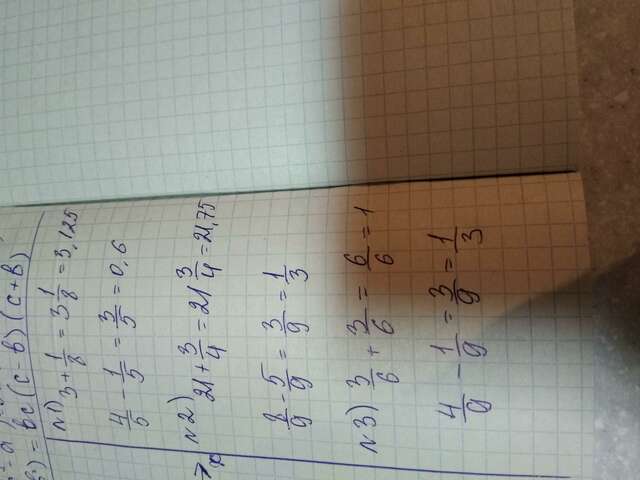 = bc(c-b)(c+b)
N1) 3 + 1/8 = 3 1/8 = 3,125
4/5 - 1/5 = 3/5 = 0,6
N2) 21 + 3/4 = 21 3/4 = 21,75
8/9 - 5/9 = 3/9 = 1/3
N3) 3/6 + 3/6 = 6/6 = 1
4/9 - 1/9 = 3/9 = 1/3